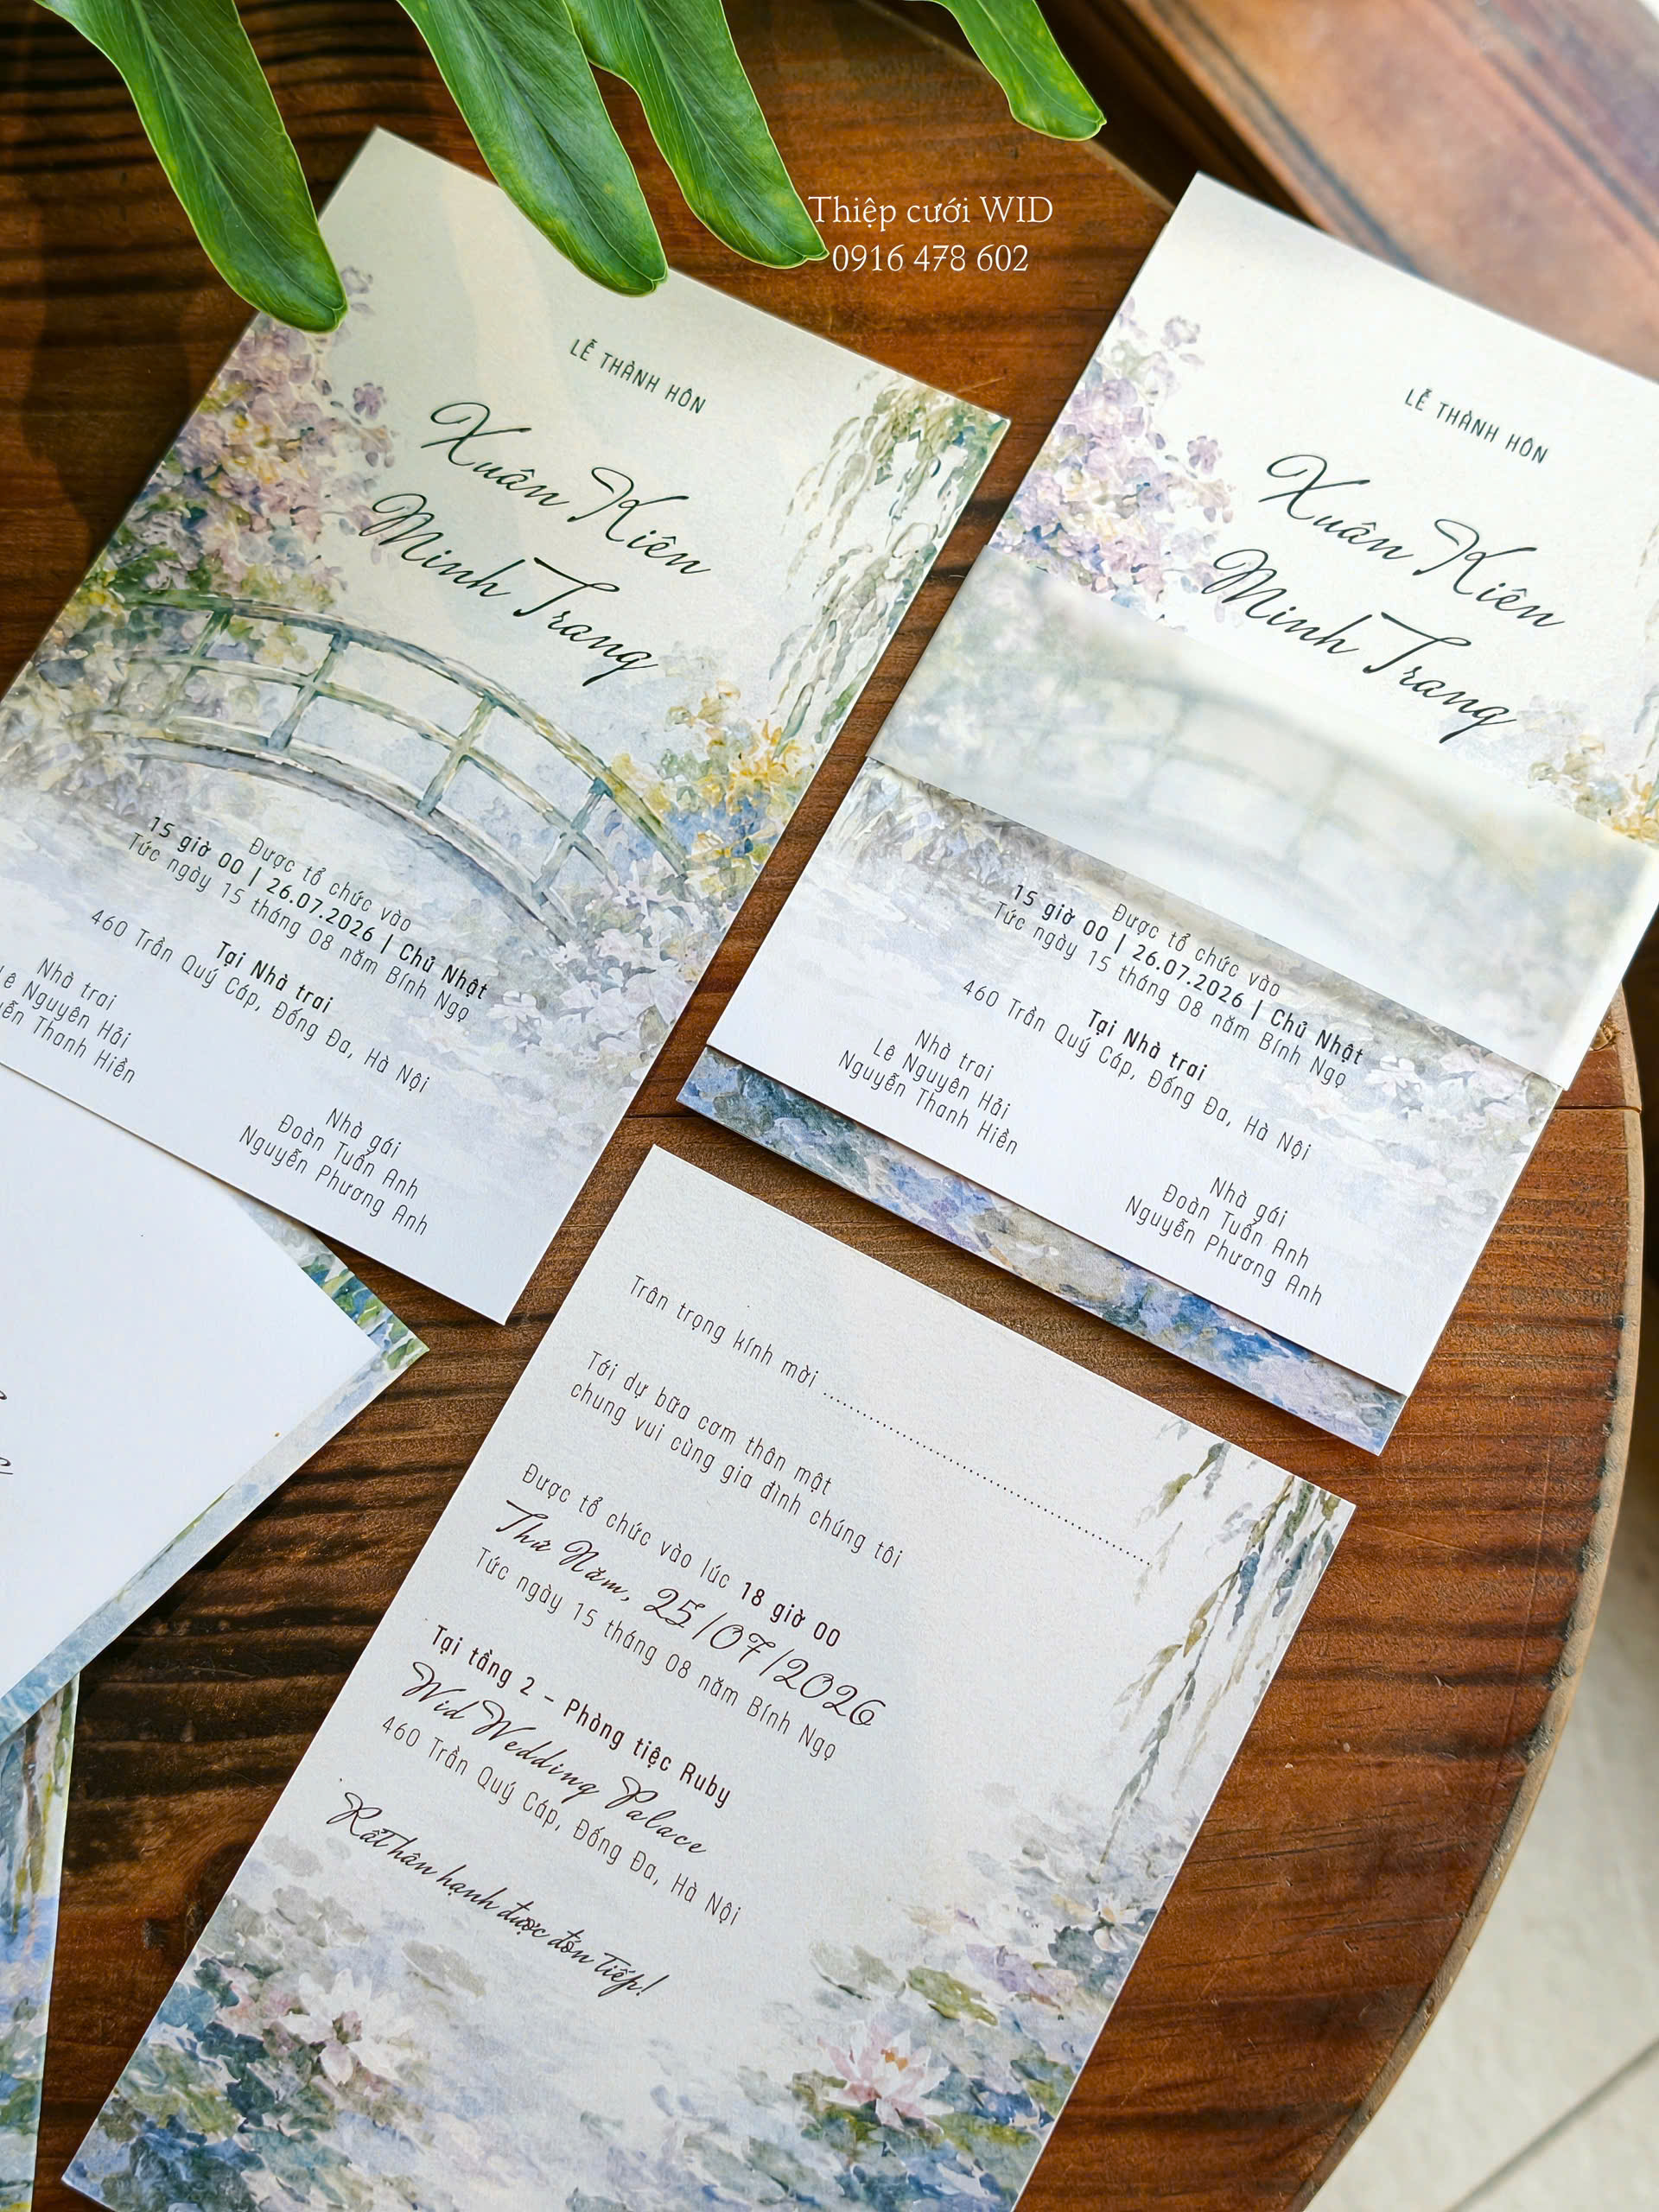 Thiệp cưới WID
0916 478 602
LỄ THÀNH HÔN
Xuân Kiên
Minh Trang
Được tổ chức vào
15 giờ 00 | 26.07.2026 | Chủ Nhật
Tức ngày 15 tháng 08 năm Bính Ngọ
Tại Nhà trai
460 Trần Quý Cáp, Đống Đa, Hà Nội
Nhà trai
Lê Nguyên Hải
Nguyễn Thanh Hiền
Nhà gái
Đoàn Tuấn Anh
Nguyễn Phương Anh
LỄ THÀNH HÔN
Xuân Kiên
Minh Trang
Được tổ chức vào
15 giờ 00 | 26.07.2026 | Chủ Nhật
Tức ngày 15 tháng 08 năm Bính Ngọ
Tại Nhà trai
460 Trần Quý Cáp, Đống Đa, Hà Nội
Nhà trai
Lê Nguyên Hải
Nguyễn Thanh Hiền
Nhà gái
Đoàn Tuấn Anh
Nguyễn Phương Anh
Trân trọng kính mời ..............................
Tới dự bữa cơm thân mật
chung vui cùng gia đình chúng tôi
Được tổ chức vào lúc 18 giờ 00
Thứ Năm, 25/07/2026
Tức ngày 15 tháng 08 năm Bính Ngọ
Tại tầng 2 - Phòng tiệc Ruby
Wid Wedding Palace
460 Trần Quý Cáp, Đống Đa, Hà Nội
Rất hân hạnh được đón tiếp!